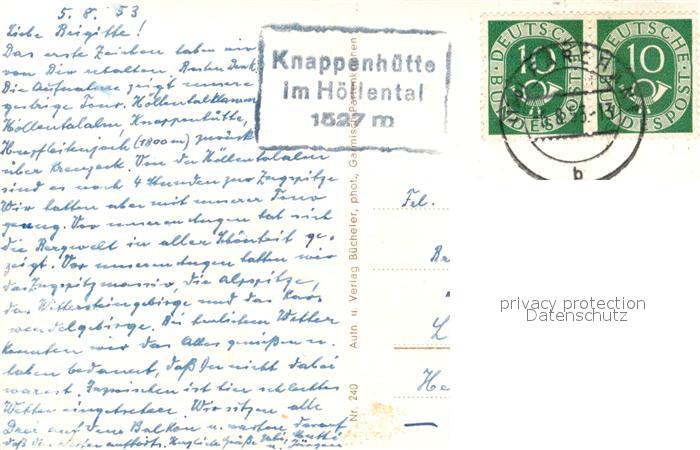 5. 8. 53
Liebe Brigitte!
Das erste Zeichen haben wir
von Dir erhalten. Besten Dank.
Die Aufnahme zeigt unsere
gestrige Tour. Höllentalklamm,
Höllentalalm, Knappenhütte,
(1800 m) zurück
über Kreuzeck. Von der Höllentalalm
sind es noch 4 Stunden zur Zugspitze
Wir hatten aber mit unserer Tour
genug. Vor unseren Augen hat sich
die Bergwelt in aller Schönheit ge-
zeigt. Vor unseren Augen hatten wir
das Zugspitzmassiv, die Alpspitze,
das Wettersteingebirge und das Kar-
wendelgebirge. Bei herrlichem Wetter
konnten wir das Alles genießen u.
haben bedauert, daß Du nicht dabei
warest. Inzwischen ist hier schlechtes
Wetter eingetreten. Wir sitzen alle
Drei auf dem Balkon u. warten darauf
daß der Regen aufhört. Herzliche Grüße
u. Jürgen
Knappenhütte
im Höllental
1527 m
Nr. 240 Aufn. u. Verlag Bücheler, phot., Garmisch-Partenkirchen
DEUTSCHE BUNDESPOST
10
DEUTSCHE BUNDESPOST
10
b
Frl.
Br
L
He
privacy protection
Datenschutz